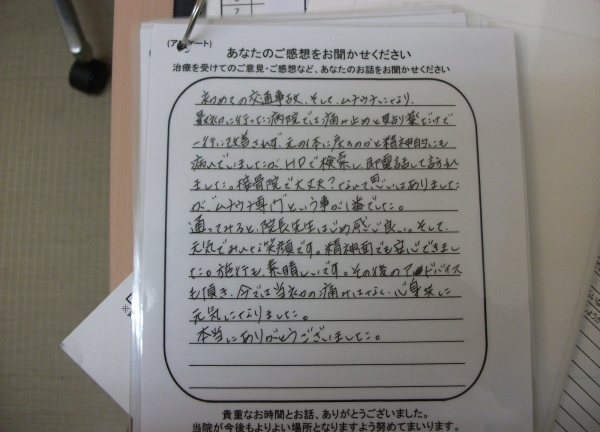 7
(アンケート)
あなたのご感想をお聞かせください
治療を受けてのご意見・ご感想など、あなたのお話をお聞かせください
初めての交通事故、そして、ムチウチになり、
最初に行った病院では痛み止めと貼り薬だけで
一行に改善されず、元の体に戻るのかと精神的にも
病んでいましたがHPで検索し、即電話して訪れ
ました。接骨院で大丈夫？なんて思いはありました
が"ムチウチ専門"という事が1番でした。
通ってみると、院長先生はじめ感じ良い。そして、
元気でみんな笑顔です。精神面でも安心できまし
た。施術も、素晴しいです。その後のアドバイス
も頂き、今では当初の痛みはなく、心身共に
元気になりました。
本当にありがとうございました。
貴重なお時間とお話、ありがとうございました。
当院が今後もよりよい場所となりますよう努めてまいります。